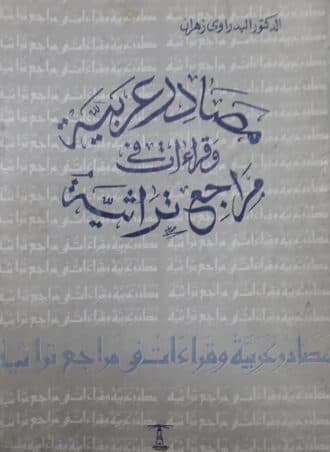 الدكتور البدراوى زهران
مصادر عربية
وقراءات فى
مراجع تراثية
مصادر عربية وقراءات فى مراجع تراثية